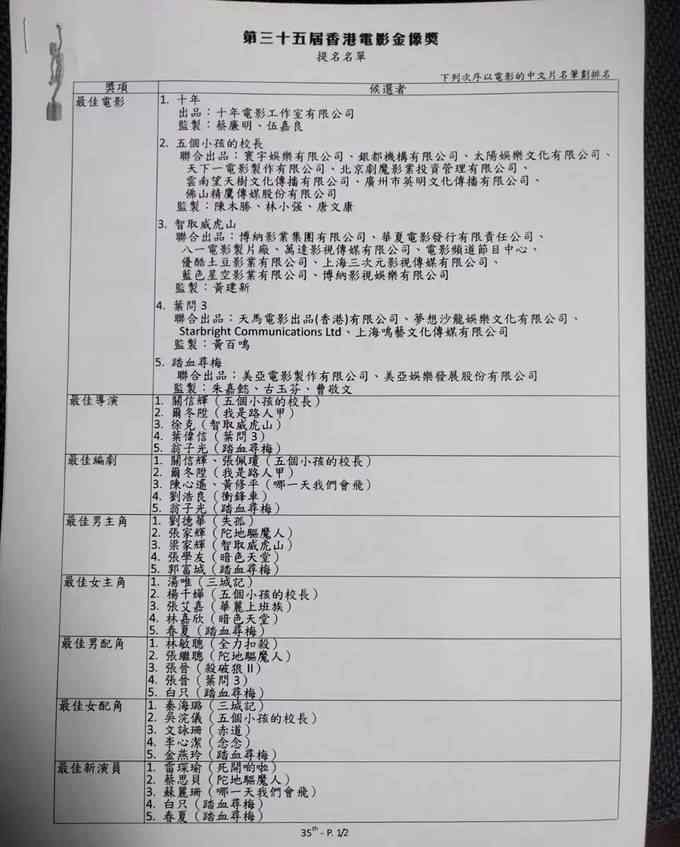 第三十五屆香港電影金像獎
提名名單
下列次序以電影的中文片名筆劃排名
獎項 候選者
最佳電影 1. 十年
出品：十年電影工作室有限公司
監製：蔡廉明、伍嘉良
2. 五個小孩的校長
聯合出品：寰宇娛樂有限公司、銀都機構有限公司、太陽娛樂文化有限公司、
天下一電影製作有限公司、北京劇魔影業投資管理有限公司、
雲南望天樹文化傳播有限公司、廣州市英明文化傳播有限公司、
佛山精鷹傳媒股份有限公司
監製：陳木勝、林小强、唐文康
3. 智取威虎山
聯合出品：博納影業集團有限公司、華夏電影發行有限責任公司、
八一電影製片廠、萬達影視傳媒有限公司、電影頻道節目中心、
優酷土豆影業有限公司、上海三次元影視傳媒有限公司、
藍色星空影業有限公司、博納影視娛樂有限公司
監製：黃建新
4. 葉問 3
聯合出品：天馬電影出品(香港)有限公司、夢想沙龍娛樂文化有限公司、
Starbright Communications Ltd、上海鳴藝文化傳媒有限公司
監製：黃百鳴
5. 踏血尋梅
聯合出品：美亞電影製作有限公司、美亞娛樂發展股份有限公司
監製：朱嘉懿、古玉芬、曹敏文
最佳導演 1. 關信輝（五個小孩的校長）
2. 爾冬陞（我是路人甲）
3. 徐克（智取威虎山）
4. 葉偉信（葉問 3）
5. 翁子光（踏血尋梅）
最佳編劇 1. 關信輝、張佩瓊（五個小孩的校長）
2. 爾冬陞（我是路人甲）
3. 陳心遙、黃修平（哪一天我們會飛）
4. 劉浩良（衝鋒車）
5. 翁子光（踏血尋梅）
最佳男主角 1. 劉德華（失孤）
2. 張家輝（陀地驅魔人）
3. 梁家輝（智取威虎山）
4. 張學友（暗色天堂）
5. 郭富城（踏血尋梅）
最佳女主角 1. 湯唯（三城記）
2. 楊千嬅（五個小孩的校長）
3. 張艾嘉（華麗上班族）
4. 林嘉欣（暗色天堂）
5. 春夏（踏血尋梅）
最佳男配角 1. 林敏聰（全力扣殺）
2. 張繼聰（陀地驅魔人）
3. 張晉（殺破狼 II）
4. 張晉（葉問 3）
5. 白只（踏血尋梅）
最佳女配角 1. 秦海璐（三城記）
2. 吳浣儀（五個小孩的校長）
3. 文詠珊（赤道）
4. 李心潔（念念）
5. 金燕玲（踏血尋梅）
最佳新演員 1. 雷琛瑜（死開啲啦）
2. 蔡思貝（陀地驅魔人）
3. 蘇麗珊（哪一天我們會飛）
4. 白只（踏血尋梅）
5. 春夏（踏血尋梅）
35th - P. 1/2